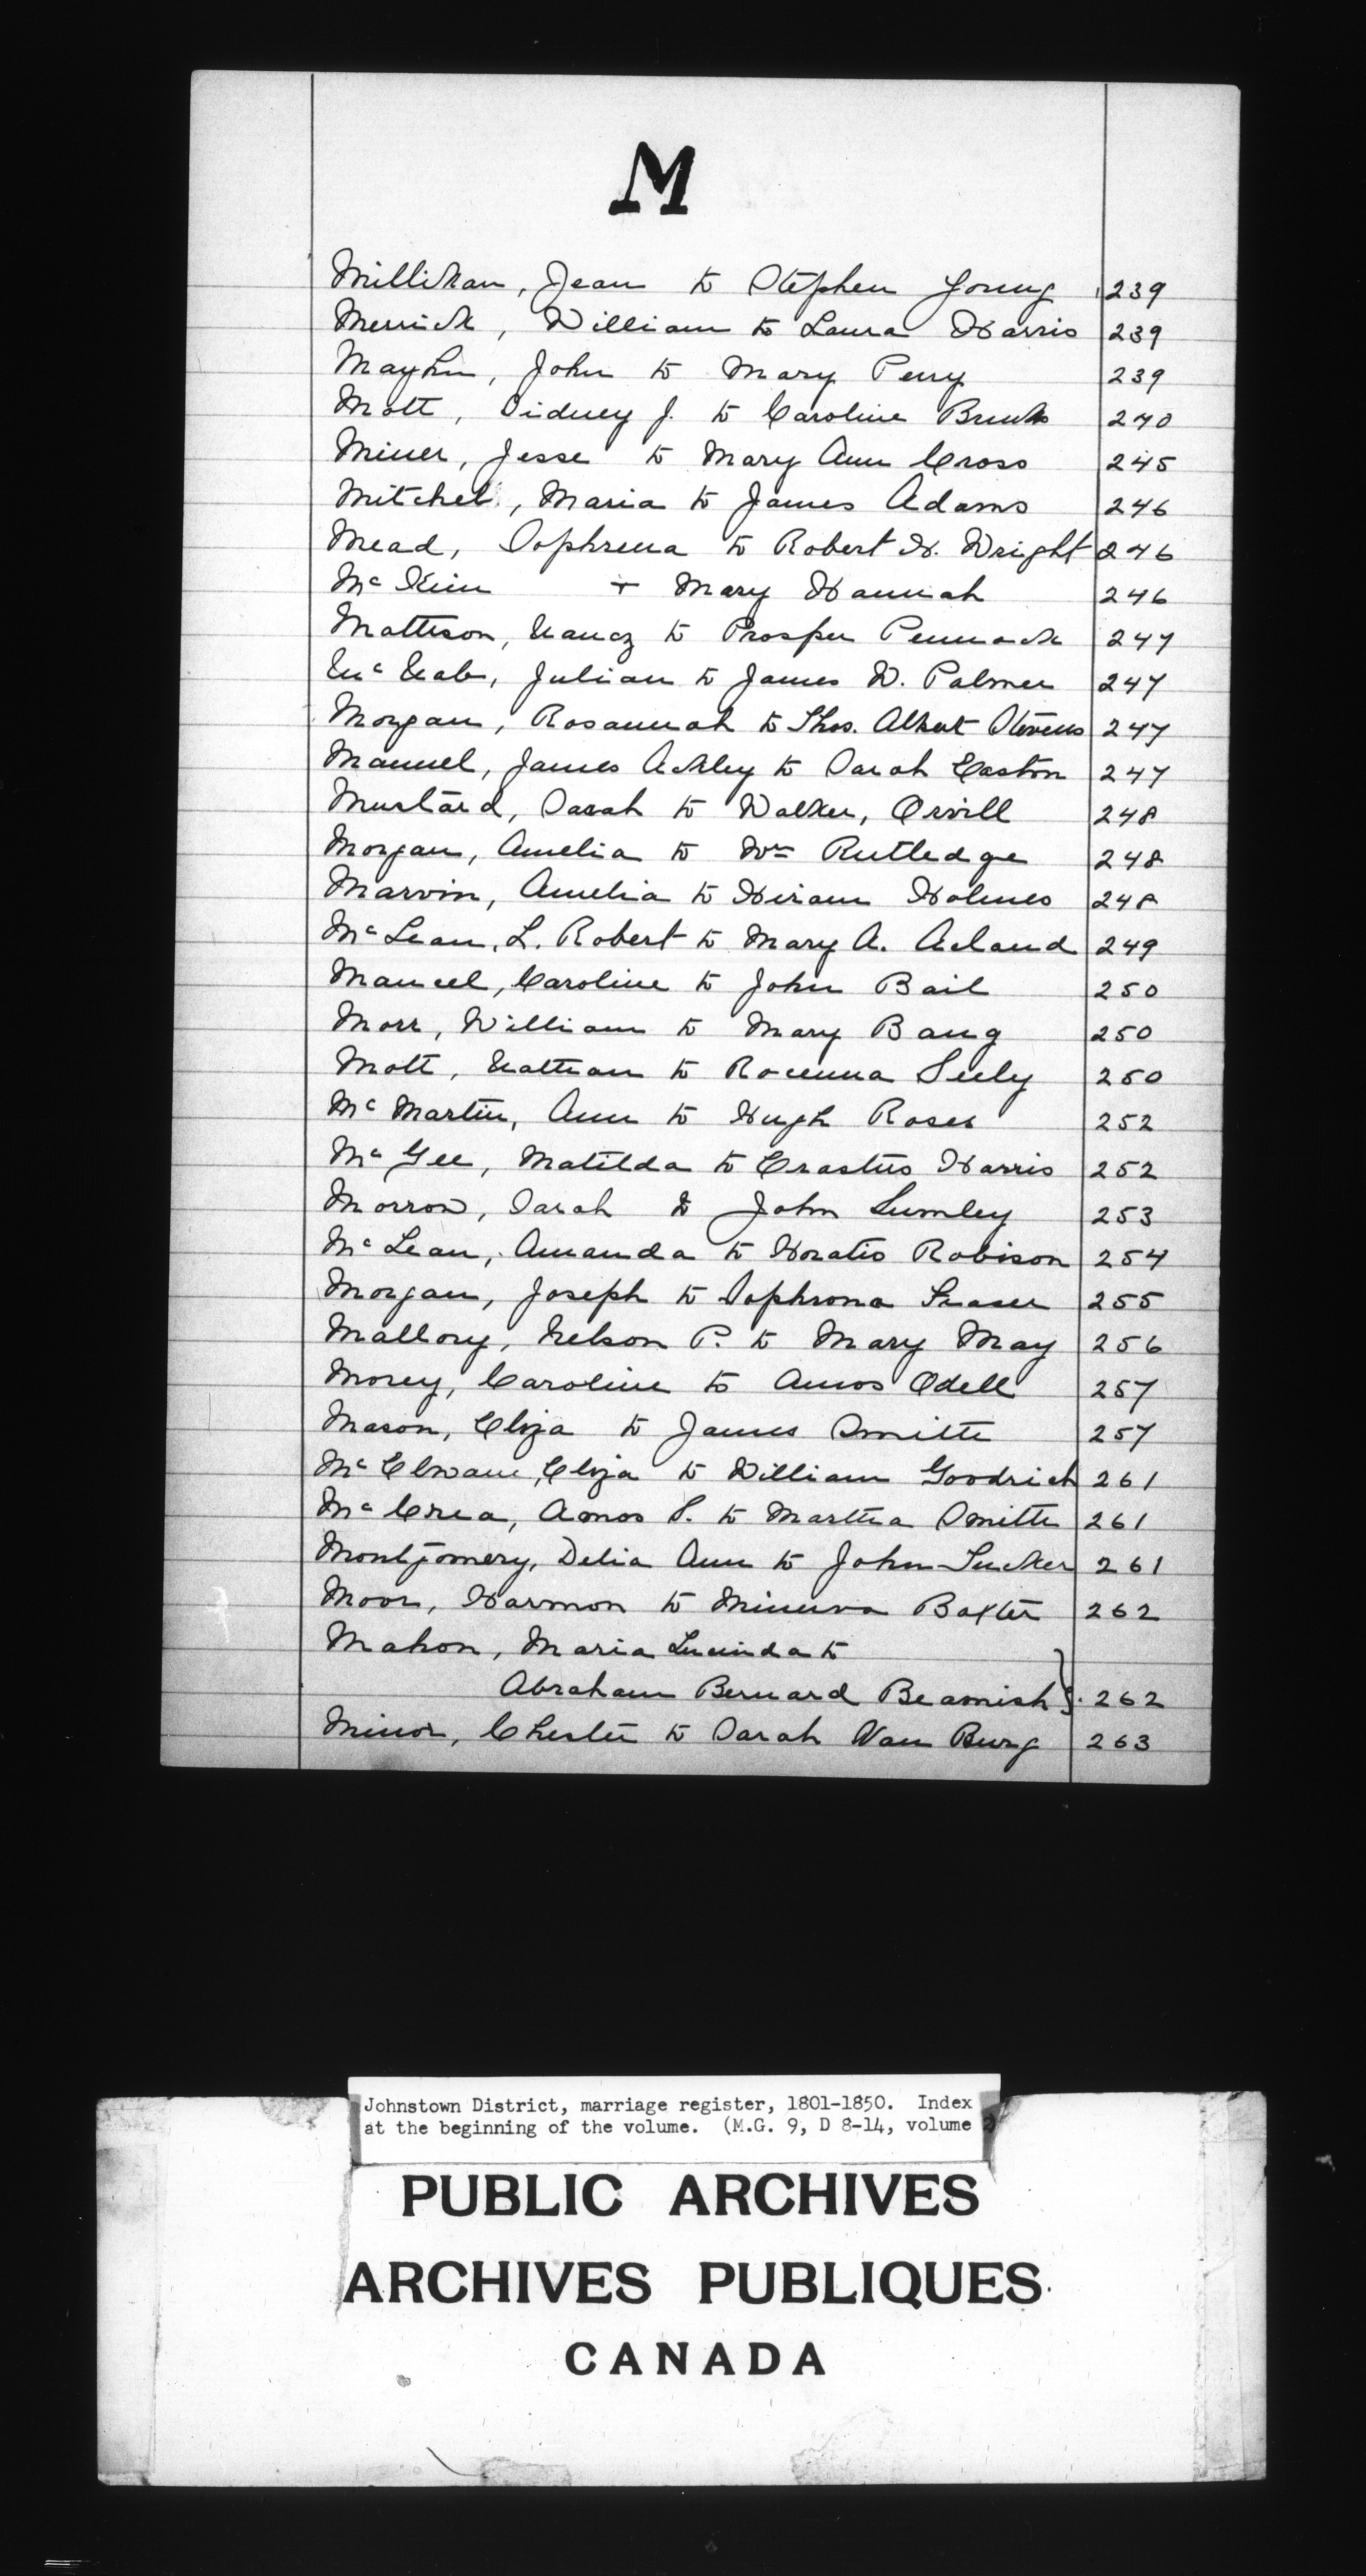 M
Millikan, Jean to Stephen Young 239
Merrick, William to Laura Harris 239
Mayhu, John to Mary Perry 239
Mott, Sidney J. to Caroline Brucks 240
Miner, Jesse to Mary Ann Cross 245
Mitchel, Maria to James Adams 246
Mead, Sophrena to Robert H. Wright 246
Mc Kim + Mary Hannah 246
Mattison, Nancy to Prosper Pennock 247
Mc Nab, Julian to James W. Palmer 247
Morgan, Rosannah to Thos. Albert Stevens 247
Manuel, James Ackley to Sarah Easton 247
Mustard, Sarah to Walker, Orvill 248
Morgan, Amelia to Wm Rutledge 248
Marvin, Amelia to Hiram Holmes 248
Mc Lean, L. Robert to Mary A. Acland 249
Manuel, Caroline to John Bail 250
Morr, William to Mary Bang 250
Mott, Nathan to Rocenna Seely 250
Mc Martin, Ann to Hugh Roses 252
Mc Gee, Matilda to Erastus Harris 252
Morrow, Sarah to John Lumley 253
Mc Lean, Amanda to Horatio Robison 254
Morgan, Joseph to Sophrona Fraser 255
Mallory, Nelson P. to Mary May 256
Morey, Caroline to Amos Odell 257
Mason, Eliza to James Smith 257
Mc Elwain, Eliza to William Goodrich 261
Mc Crea, Amos S. to Martha Smith 261
Montgomery, Delia Ann to John Tucker 261
Moor, Harmon to Minerva Baxter 262
Mahon, Maria Lucinda to
Abraham Bernard Beamish } 262
Minor, Chester to Sarah Van Burg 263
Johnstown District, marriage register, 1801-1850. Index
at the beginning of the volume. (M.G. 9, D 8-14, volume 2)
PUBLIC ARCHIVES
ARCHIVES PUBLIQUES
CANADA